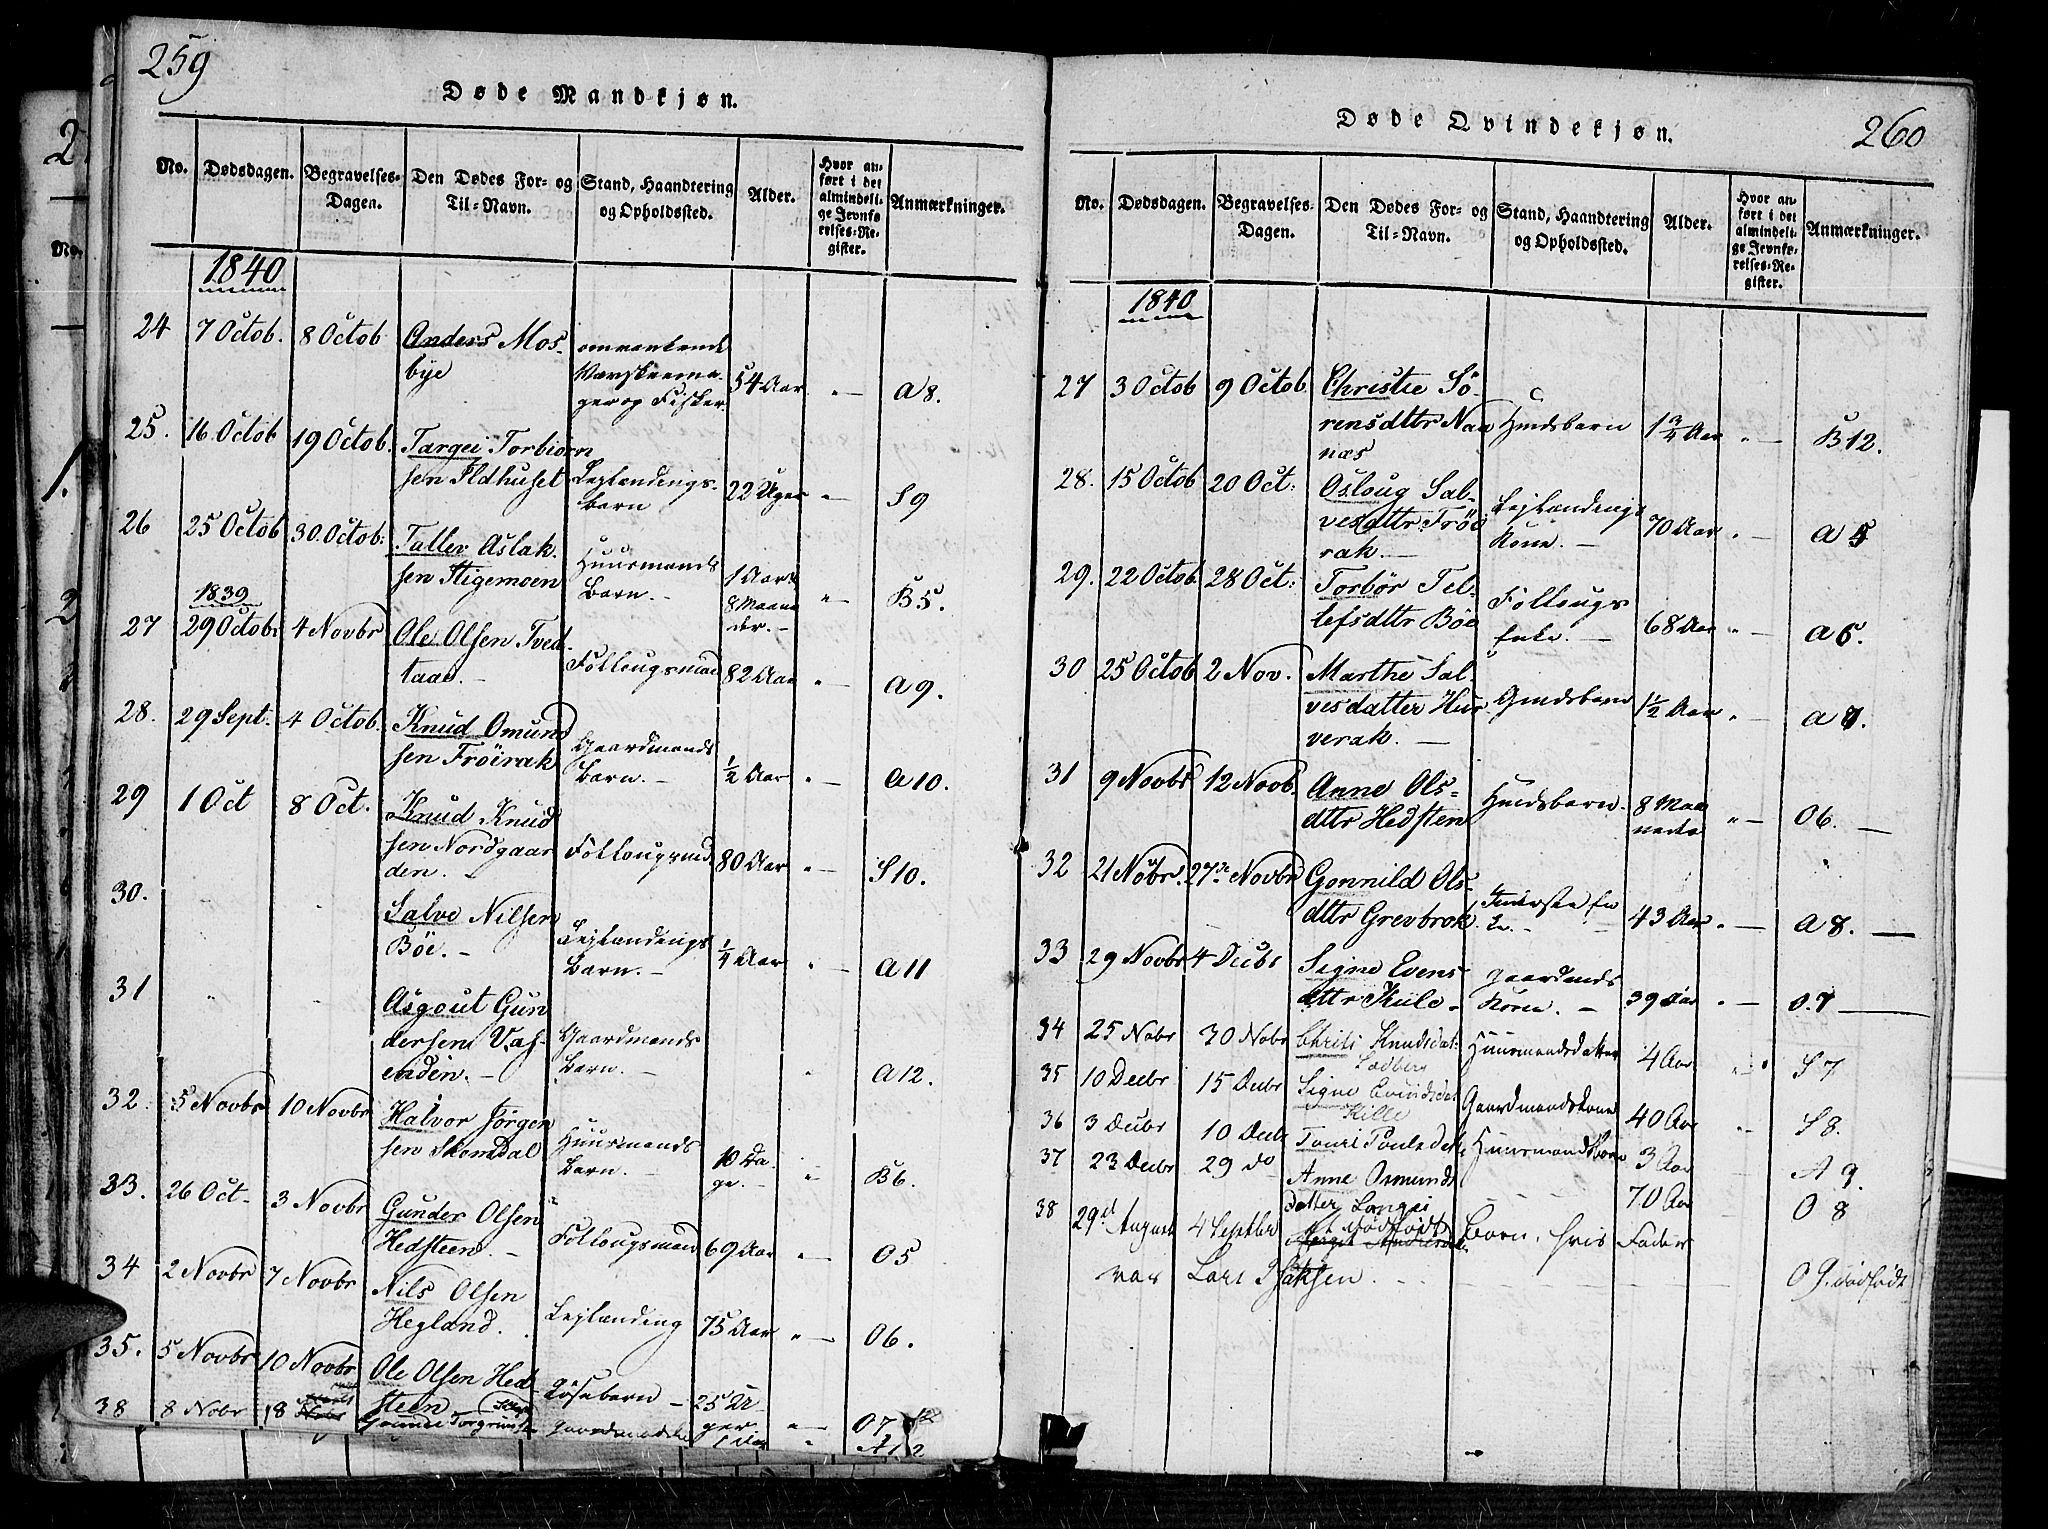 259
Døde Mandkjøn.
No.
Dødsdagen.
Begravelses-
Dagen.
Den Dødes For- og
Til-Navn.
Stand, Haandtering
og Opholdssted.
Alder.
Hvor an-
ført i det
almindeli-
ge Jevnfø-
relses-Re-
gister.
Anmærkninger.
1840
24 7 Octob. 8 Octob Anders Mos-
bye
omvankende
ger og Fisker
54 Aar " — A 8.
25. 16 Octob 19 Octob. Targei Torbiørn
sen Ildhuset
Lejlændings
Barn
22 Uger " — S 9
26 25 Octob 30. Octob: Tallev Aslak
sen Stigemoen
Huusmands
Barn. —
1 Aar
8 Maane
der. —
" B 5. —
1839
27 29 Octobr 4 Novbr Ole Olsen Tved
taae. —
Føllougsmand 82 Aar " — A 9.
28. 29 Sept. 4 Octob. Knud Omund
sen Frøirak
Gaardmands
Barn. —
1/2 Aar " — A 10.
29 1 Oct 8 Oct. Knud Knud
sen Nordgaar
den. —
Føllougsmd 80 Aar " — S 10.
30. " " Salve Nilsen
Bøe. —
Lejlændings
Barn. —
1/4 Aar " — A 11
31 " " Asgout Gun
dersen Vas-
enden. —
Gaardmands
Barn. —
" A 12.
32. 5 Novbr 10 Novbr Halvor Jørgen
sen Skomdal
Huusmands
Barn. —
10 Da-
ge. —
" B 6.
33. 26 Oct. 3 Novbr Gunder Olsen
Hedsteen. —
Føllougsmand 69 Aar " — O 5
34 2 Novbr 7 Novbr Nils Olsen
Hegland.
Lejlænding 75 Aar " — O 6.
35. 5 Novbr 10 Novbr Ole Olsen Hed-
steen
Løsebarn — 25 U-
ger
" — O 7
38 8 Nobr 18 Gunnel Torgrims
A 12
260
Døde Qvindekjøn.
No.
Dødsdagen.
Begravelses-
Dagen.
Den Dødes For- og
Til-Navn.
Stand, Haandtering
og Opholdssted.
Alder.
Hvor an-
ført i det
almindeli-
ge Jevnfø-
relses-Re-
gister.
Anmærkninger.
1840
27 3 Octob 9 Octob. Christie Sø-
rensdttr Naa
næs
Hmdsbarn 1 3/4 Aar " — B 12.
28. 15 Octob 20 Oct: Osloug Sal-
vesdttr Frøi
rak. —
Lejlændings
Kone. —
70 Aar " — A 5
29. 22 Octob. 28 Oct: Torbør Tel-
lefsdttr Bøe
Føllougs
Enke. —
68 Aar " — A 6.
30 25 Octob 2 Nov. Marthe Sal-
vesdatter Hur
verak. —
Gmdsbarn 1 1/2 Aar " — A 7.
31 9 Novbr 12 Novb. Anne Ols-
dttr Hedsten
Hmdsbarn. 8 Maa
neder
" — O 6. —
32 21 Nobr. 27de Novbr Gonnild Ols-
dttr Grevbrok.
43 Aar " — A 8. —
33 29 Novbr 4 Decbr Signe Evens-
dttr Kiile —
gaardmds
Kone. —
39 Aar " — O 7 —
34 25 Nobr 30 Nobr Christi Knudsdat:
Ladberg
Huusmandsdatter 4 Aar " — S 7
35 10 Decbr 15 Decbr Signe Evindsdat
Kille
Gaardmandskone 40 Aar " — S 8.
36 3 Decbr 10 Decbr Touri Poulsdatt. Huusmandsbarn 3 Aar A 9.
37 23 Decbr 29 do Anne Osmunds
datter Langei
70 Aar O 8
38 29d August 4 Septber Et dødfødt Barn, hvis Fader
var Lars Isaksen. O 9. dødfødt